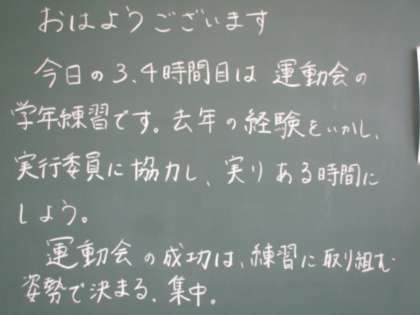 おはようございます
今日の3.4時間目は運動会の
学年練習です。去年の経験をいかし、
実行委員に協力し、実りある時間に
しよう。
運動会の成功は、練習に取り組む
姿勢で決まる、集中。